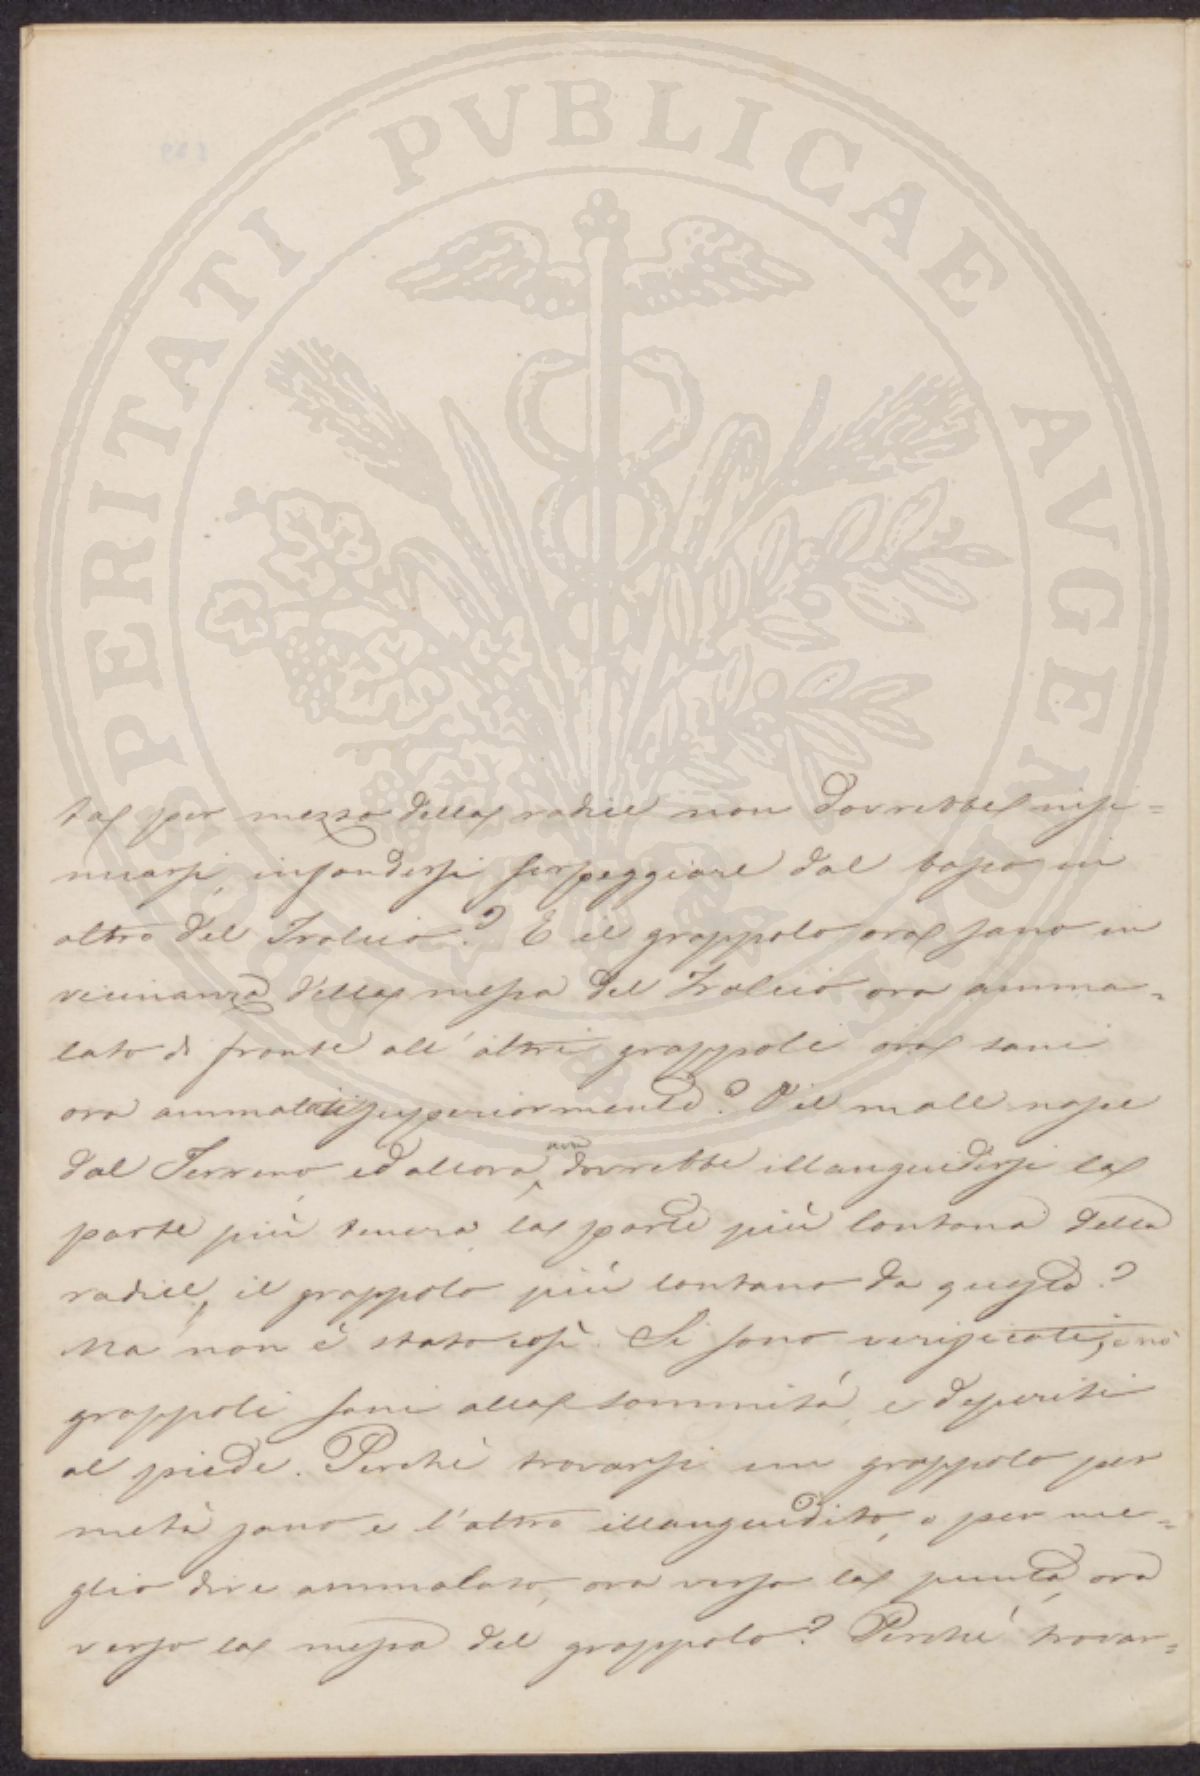 PROSPERITATI PUBLICAE AUGENDAE
ta per mezzo della radice non dovrebbe insi=
nuarsi, infondersi serpeggiare dal basso in
altro del Tralcio? E il grappolo ora sano in
vicinanza della messa del Tralcio ora amma=
lato di fronte all'altri grappoli ora sani
ora ammalati superiormente? O il male nasce
dal Terreno ed allora non dovrebbe illanguidirsi la
parte più tenera la parte più lontana della
radice, il grappolo più lontano da questa?
Ma non è stato così. Si sono verificati
grappoli sani alla sommità, e deperiti
al piede. Perchè trovarsi un grappolo per
metà sano e l'altra illanguidito, o per me=
glio dire ammalato, ora verso la punta, ora
verso la messa del grappolo? Perchè trovar=